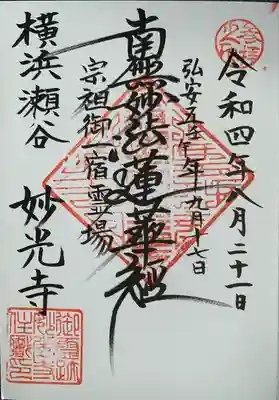 令和四年八月二十一日
弘安五壬午年九月十七日
南無妙法蓮華経
宗祖御一宿霊場
横浜瀬谷 妙光寺